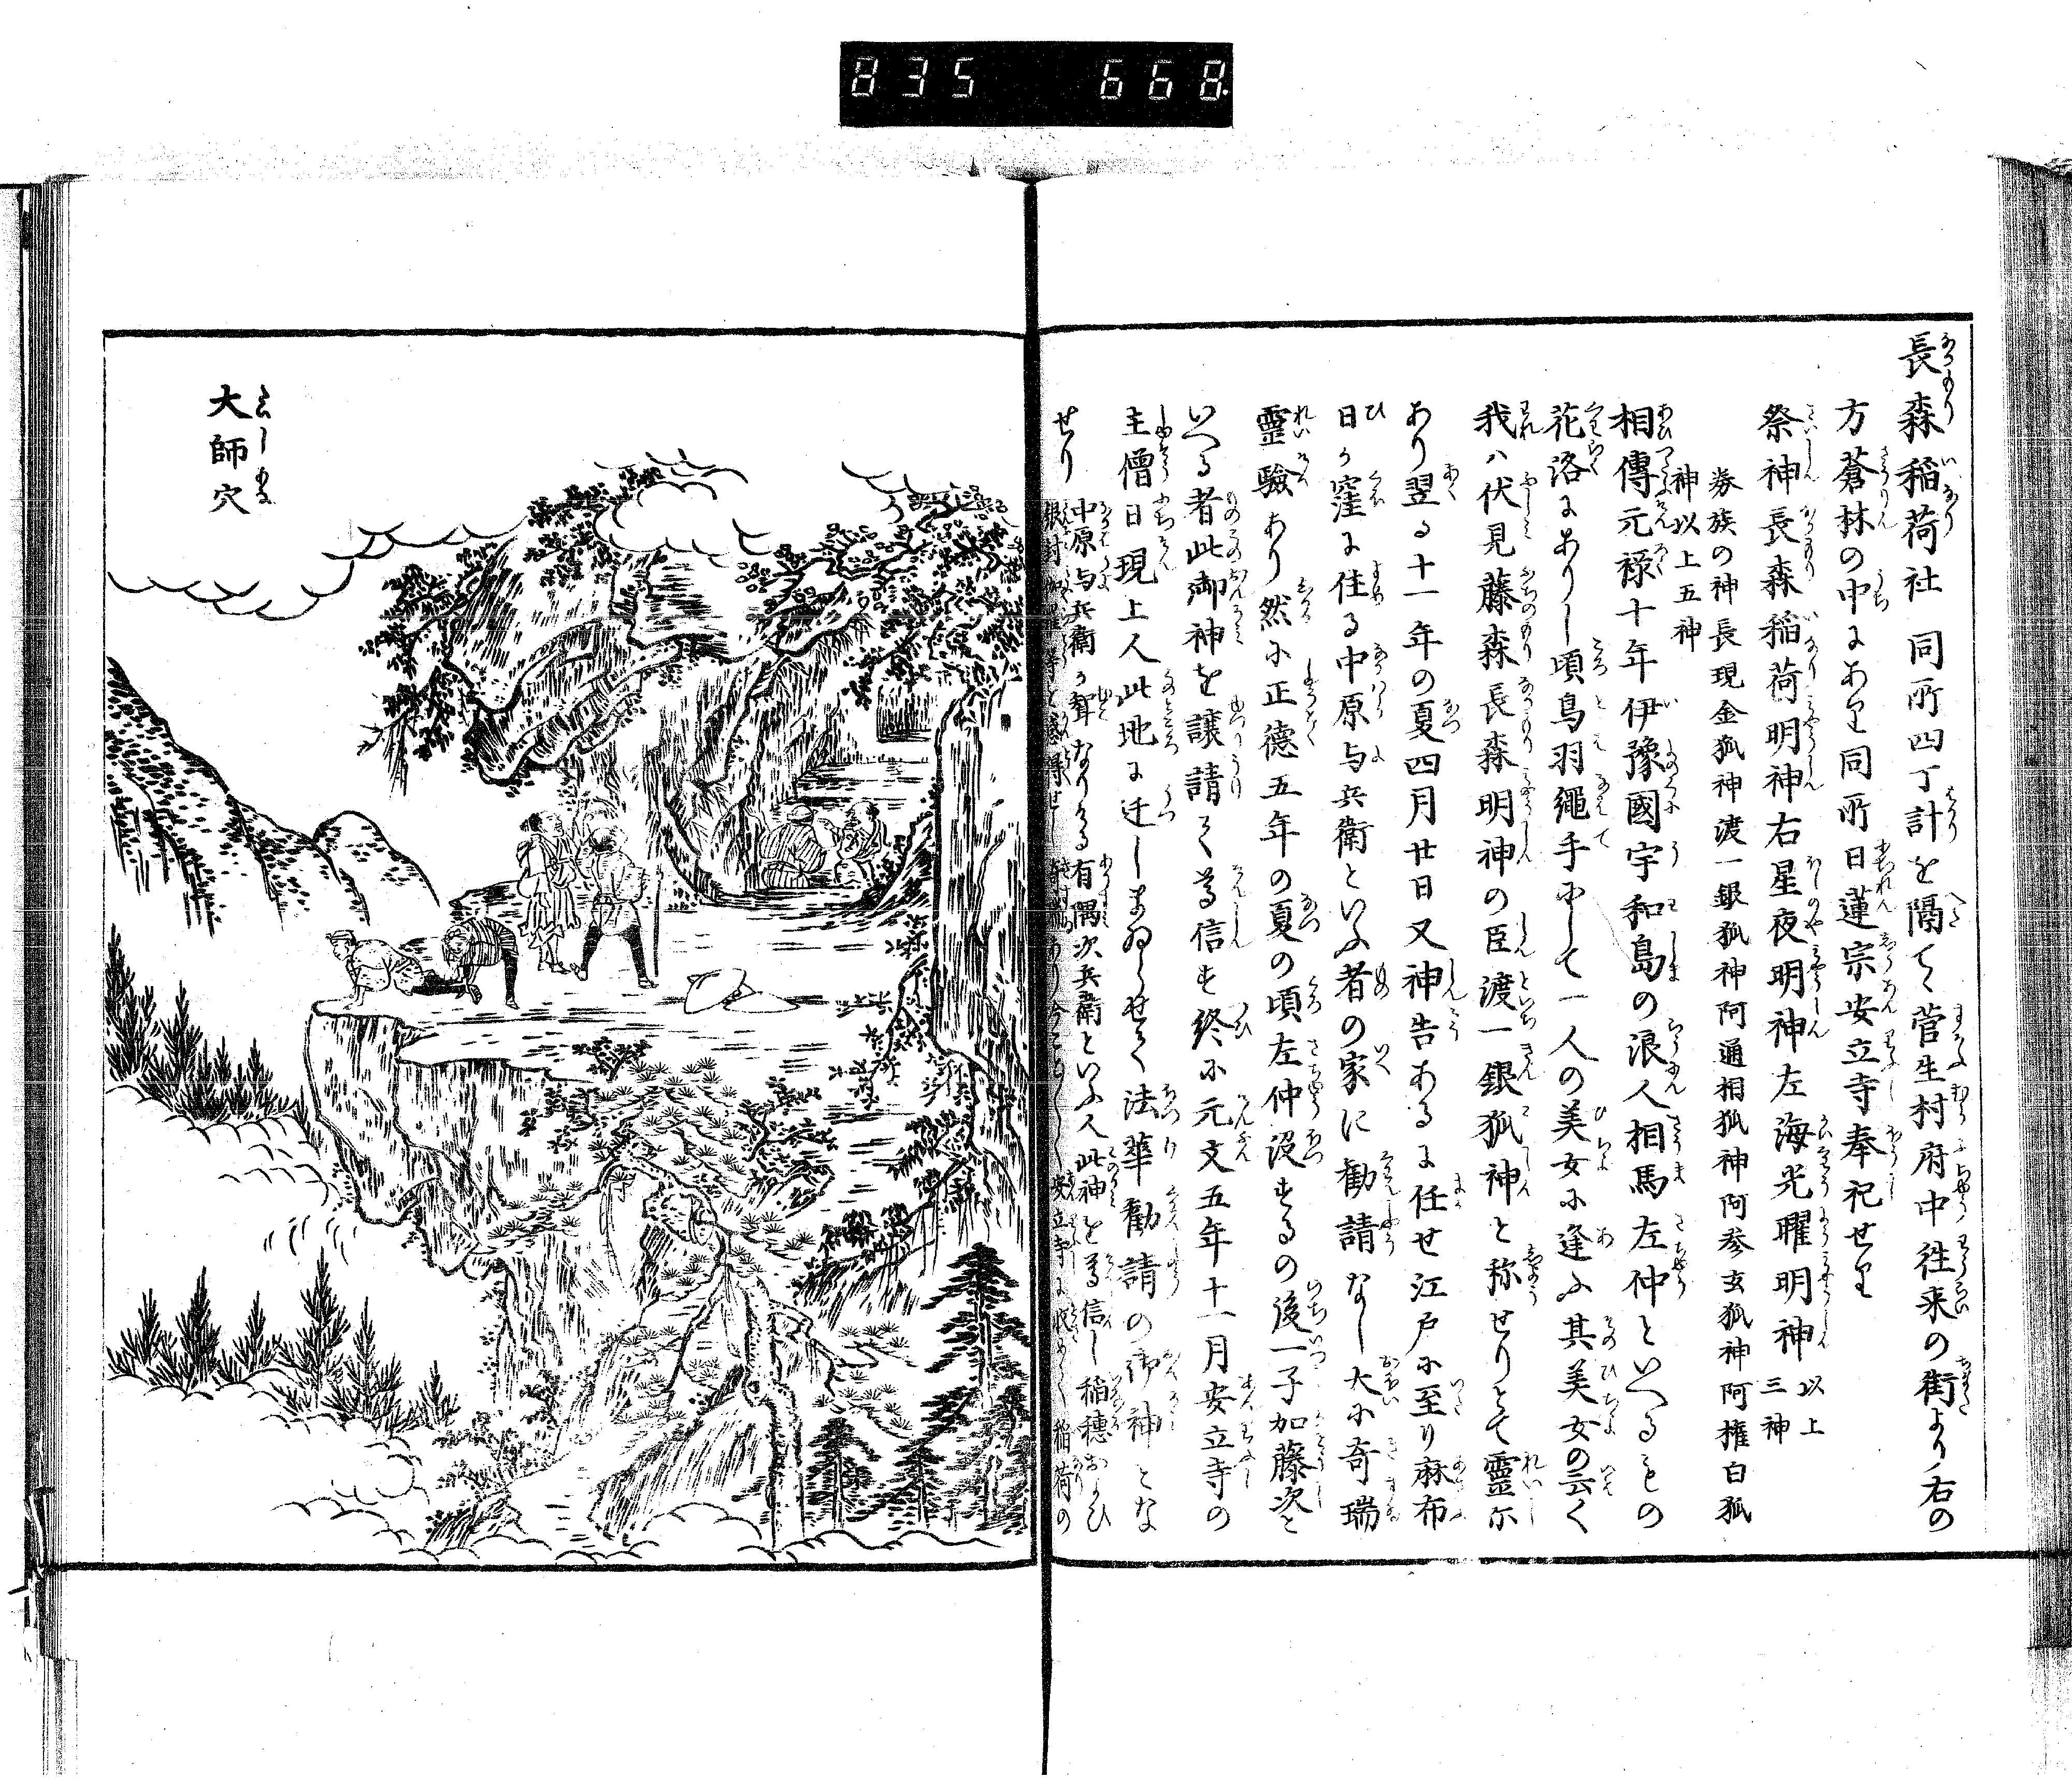 835 668
長森稲荷社 同所四丁計を隔てゝ菅生村府中往来の街より右の
方蒼林の中にあり同所日蓮宗安立寺奉祀せり
祭神長森稲荷明神右星夜明神左海光曜明神以上三神
券族の神長現金狐神渡一銀狐神阿通相狐神阿参玄狐神阿権白狐
神以上五神
相傳元禄十年伊豫國宇和島の浪人相馬左仲といへるもの
花洛にありし頃鳥羽縄手にして一人の美女に逢ふ其美女の云く
我ハ伏見藤森長森明神の臣渡一銀狐神と称せりとて霊尓
あり翌る十一年の夏四月廿日又神告あるに任せ江戸に至り麻布
日か窪に住る中原与兵衛といふ者の家に勧請なし大に奇瑞
霊驗あり然に正徳五年の夏の頃左仲没するの後一子加藤次と
いへる者此御神を譲請て尊信す終に元文五年十一月安立寺の
主僧日現上人此地に迁しまゐらせて法華勧請の御神とな
せり 中原与兵衛か聟なりける有隅次兵衛といふ人此神を尊信し稲穂およひ
安立寺に収めて稲荷の
大師穴